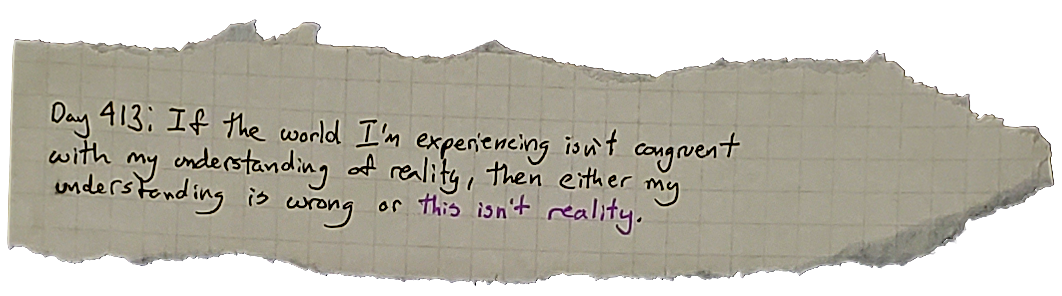 Day 413: If the world I'm experiencing isn't congruent
with my understanding of reality, then either my
understanding is wrong or this isn't reality.